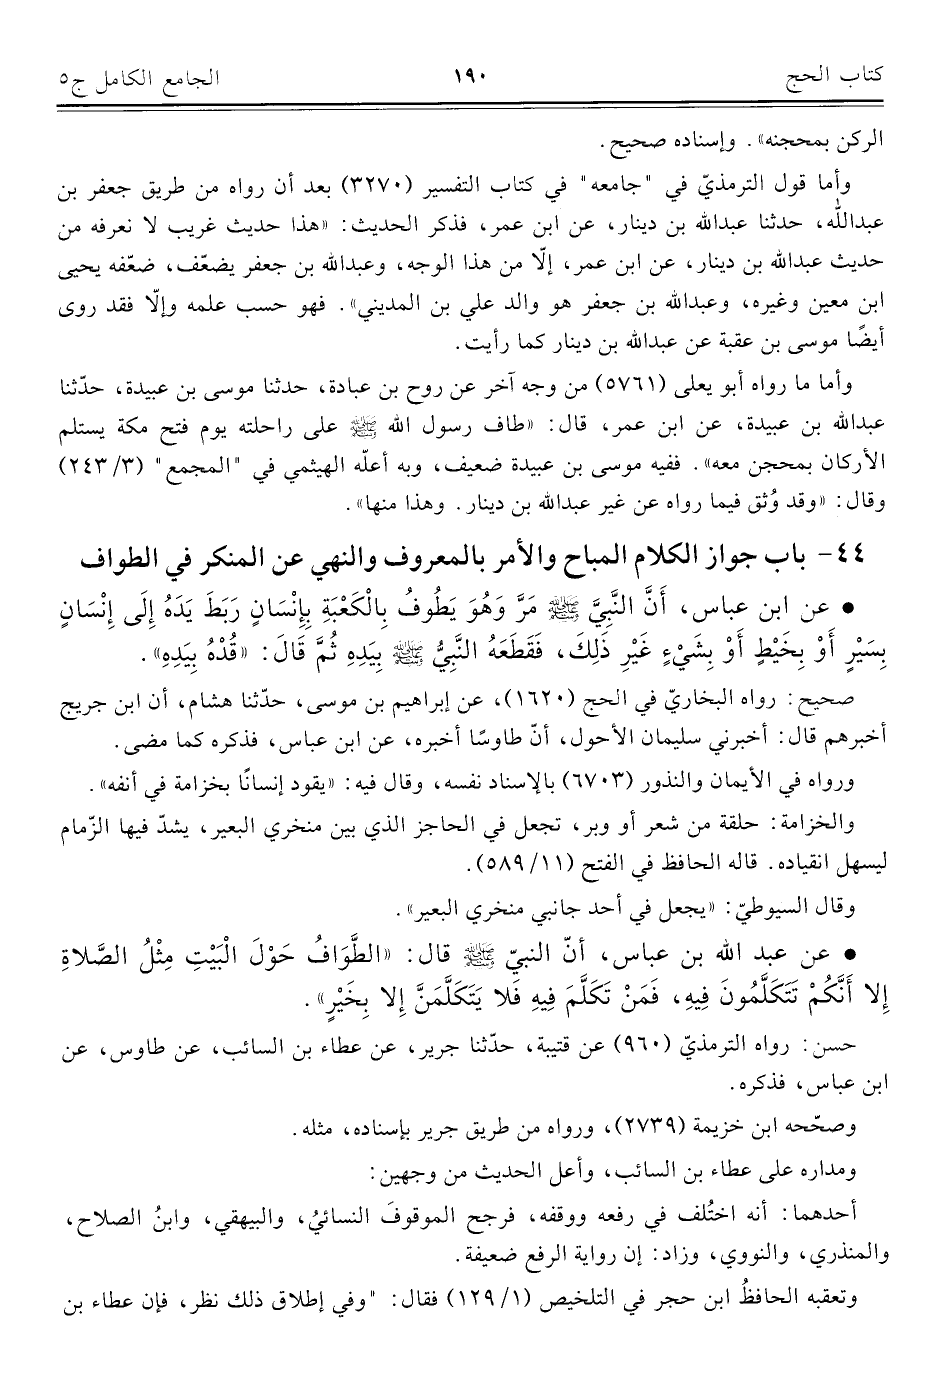 كتاب الحج ١٩٠ الجامع الكامل ج٥
الركن بمحجنه». وإسناده صحيح.
وأما قول الترمذيّ في "جامعه" في كتاب التفسير (٣٢٧٠) بعد أن رواه من طريق جعفر بن
عبدالله، حدثنا عبدالله بن دينار، عن ابن عمر، فذكر الحديث: «هذا حديث غريب لا نعرفه من
حديث عبدالله بن دينار، عن ابن عمر، إلّا من هذا الوجه، وعبدالله بن جعفر يضعّف، ضعّفه يحيى
ابن معين وغيره، وعبدالله بن جعفر هو والد علي بن المديني». فهو حسب علمه وإلّا فقد روى
أيضًا موسى بن عقبة عن عبدالله بن دينار كما رأيت.
وأما ما رواه أبو يعلى (٥٧٦١) من وجه آخر عن روح بن عبادة، حدثنا موسى بن عبيدة، حدّثنا
عبدالله بن عبيدة، عن ابن عمر، قال: «طاف رسول الله ﷺ على راحلته يوم فتح مكة يستلم
الأركان بمحجن معه». ففيه موسى بن عبيدة ضعيف، وبه أعلّه الهيثمي في "المجمع" (٣/٢٤٣)
وقال: «وقد وُثق فيما رواه عن غير عبدالله بن دينار. وهذا منها».
٤٤- باب جواز الكلام المباح والأمر بالمعروف والنهي عن المنكر في الطواف
● عن ابن عباس، أَنَّ النَّبِيَّ ﷺ مَرَّ وَهُوَ يَطُوفُ بِالْكَعْبَةِ بِإِنْسَانٍ رَبَطَ يَدَهُ إِلَى إِنْسَانٍ
بِسَيْرٍ أَوْ بِخَيْطٍ أَوْ بِشَيْءٍ غَيْرِ ذَلِكَ، فَقَطَعَهُ النَّبِيُّ ﷺ بِيَدِهِ ثُمَّ قَالَ: «قُدْهُ بِيَدِهِ».
صحيح: رواه البخاريّ في الحج (١٦٢٠)، عن إبراهيم بن موسى، حدّثنا هشام، أن ابن جريج
أخبرهم قال: أخبرني سليمان الأحول، أنّ طاوسًا أخبره، عن ابن عباس، فذكره كما مضى.
ورواه في الأيمان والنذور (٦٧٠٣) بالإسناد نفسه، وقال فيه: «يقود إنسانًا بخزامة في أنفه».
والخزامة: حلقة من شعر أو وبر، تجعل في الحاجز الذي بين منخري البعير، يشدّ فيها الزّمام
ليسهل انقياده. قاله الحافظ في الفتح (١١/٥٨٩).
وقال السيوطيّ: «يجعل في أحد جانبي منخري البعير».
● عن عبد الله بن عباس، أنّ النبيّ ﷺ قال: «الطَّوَافُ حَوْلَ الْبَيْتِ مِثْلُ الصَّلاةِ
إِلا أَنَّكُمْ تَتَكَلَّمُونَ فِيهِ، فَمَنْ تَكَلَّمَ فِيهِ فَلا يَتَكَلَّمَنَّ إِلا بِخَيْرٍ».
حسن: رواه الترمذيّ (٩٦٠) عن قتيبة، حدّثنا جرير، عن عطاء بن السائب، عن طاوس، عن
ابن عباس، فذكره.
وصحّحه ابن خزيمة (٢٧٣٩)، ورواه من طريق جرير بإسناده، مثله.
ومداره على عطاء بن السائب، وأعل الحديث من وجهين:
أحدهما: أنه اختُلف في رفعه ووقفه، فرجح الموقوفَ النسائيُ، والبيهقي، وابنُ الصلاح،
والمنذري، والنووي، وزاد: إن رواية الرفع ضعيفة.
وتعقبه الحافظُ ابن حجر في التلخيص (١/١٢٩) فقال: "وفي إطلاق ذلك نظر، فإن عطاء بن